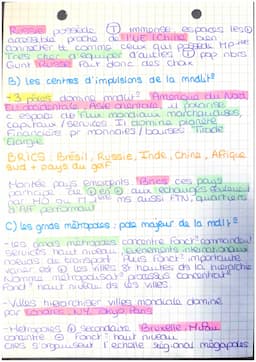 Russie possède ① immense espaces les⊕
accessible proche de l'UE, Chine bien
connecter et comme ceux qui possède
très cher d'équipée d'autres ① pop
Russie fait donc des choix
B) les centres d'impulsions de la mndlit°
- 3 pôles domine mndlit° Amérique du Nord
Asie orientale, il polarise
espace de flux mondiaux marchandises,
capitaux / services. Il domine
financiers pr monnaies / bourses Triade
Elargie
BRICS : Brésil, Russie, Inde, Chine, Afrique
sud + pays du golf
Montée pays émergents Brics ces pays
participe de ⊕ en ⊕ aux échanges
par HD ou M ms aussi FTN, quartiers
d'AF performant
C) les grnds métropoles : pôle majeur de la mdlt°
- les grnds métropoles concentre fonct° commandement
services haut niveau, événements internationaux
noeuds de transport Puis fonct° importante
varier ed ⊕ les villes ⊕ hautes ds la hiérarchie
Nombre métropolisat° process concentrat°
fonct° haut niveau ds les villes
- Villes hierarchiser villes mondiale domine
par Londres, N.Y. Tokyo Paris
- Métropoles ⊕ secondaire : Bruxelle, Milan
concentre ⊖ fonct° haut niveau
cies s'organisent l'échelle régional mégapoles